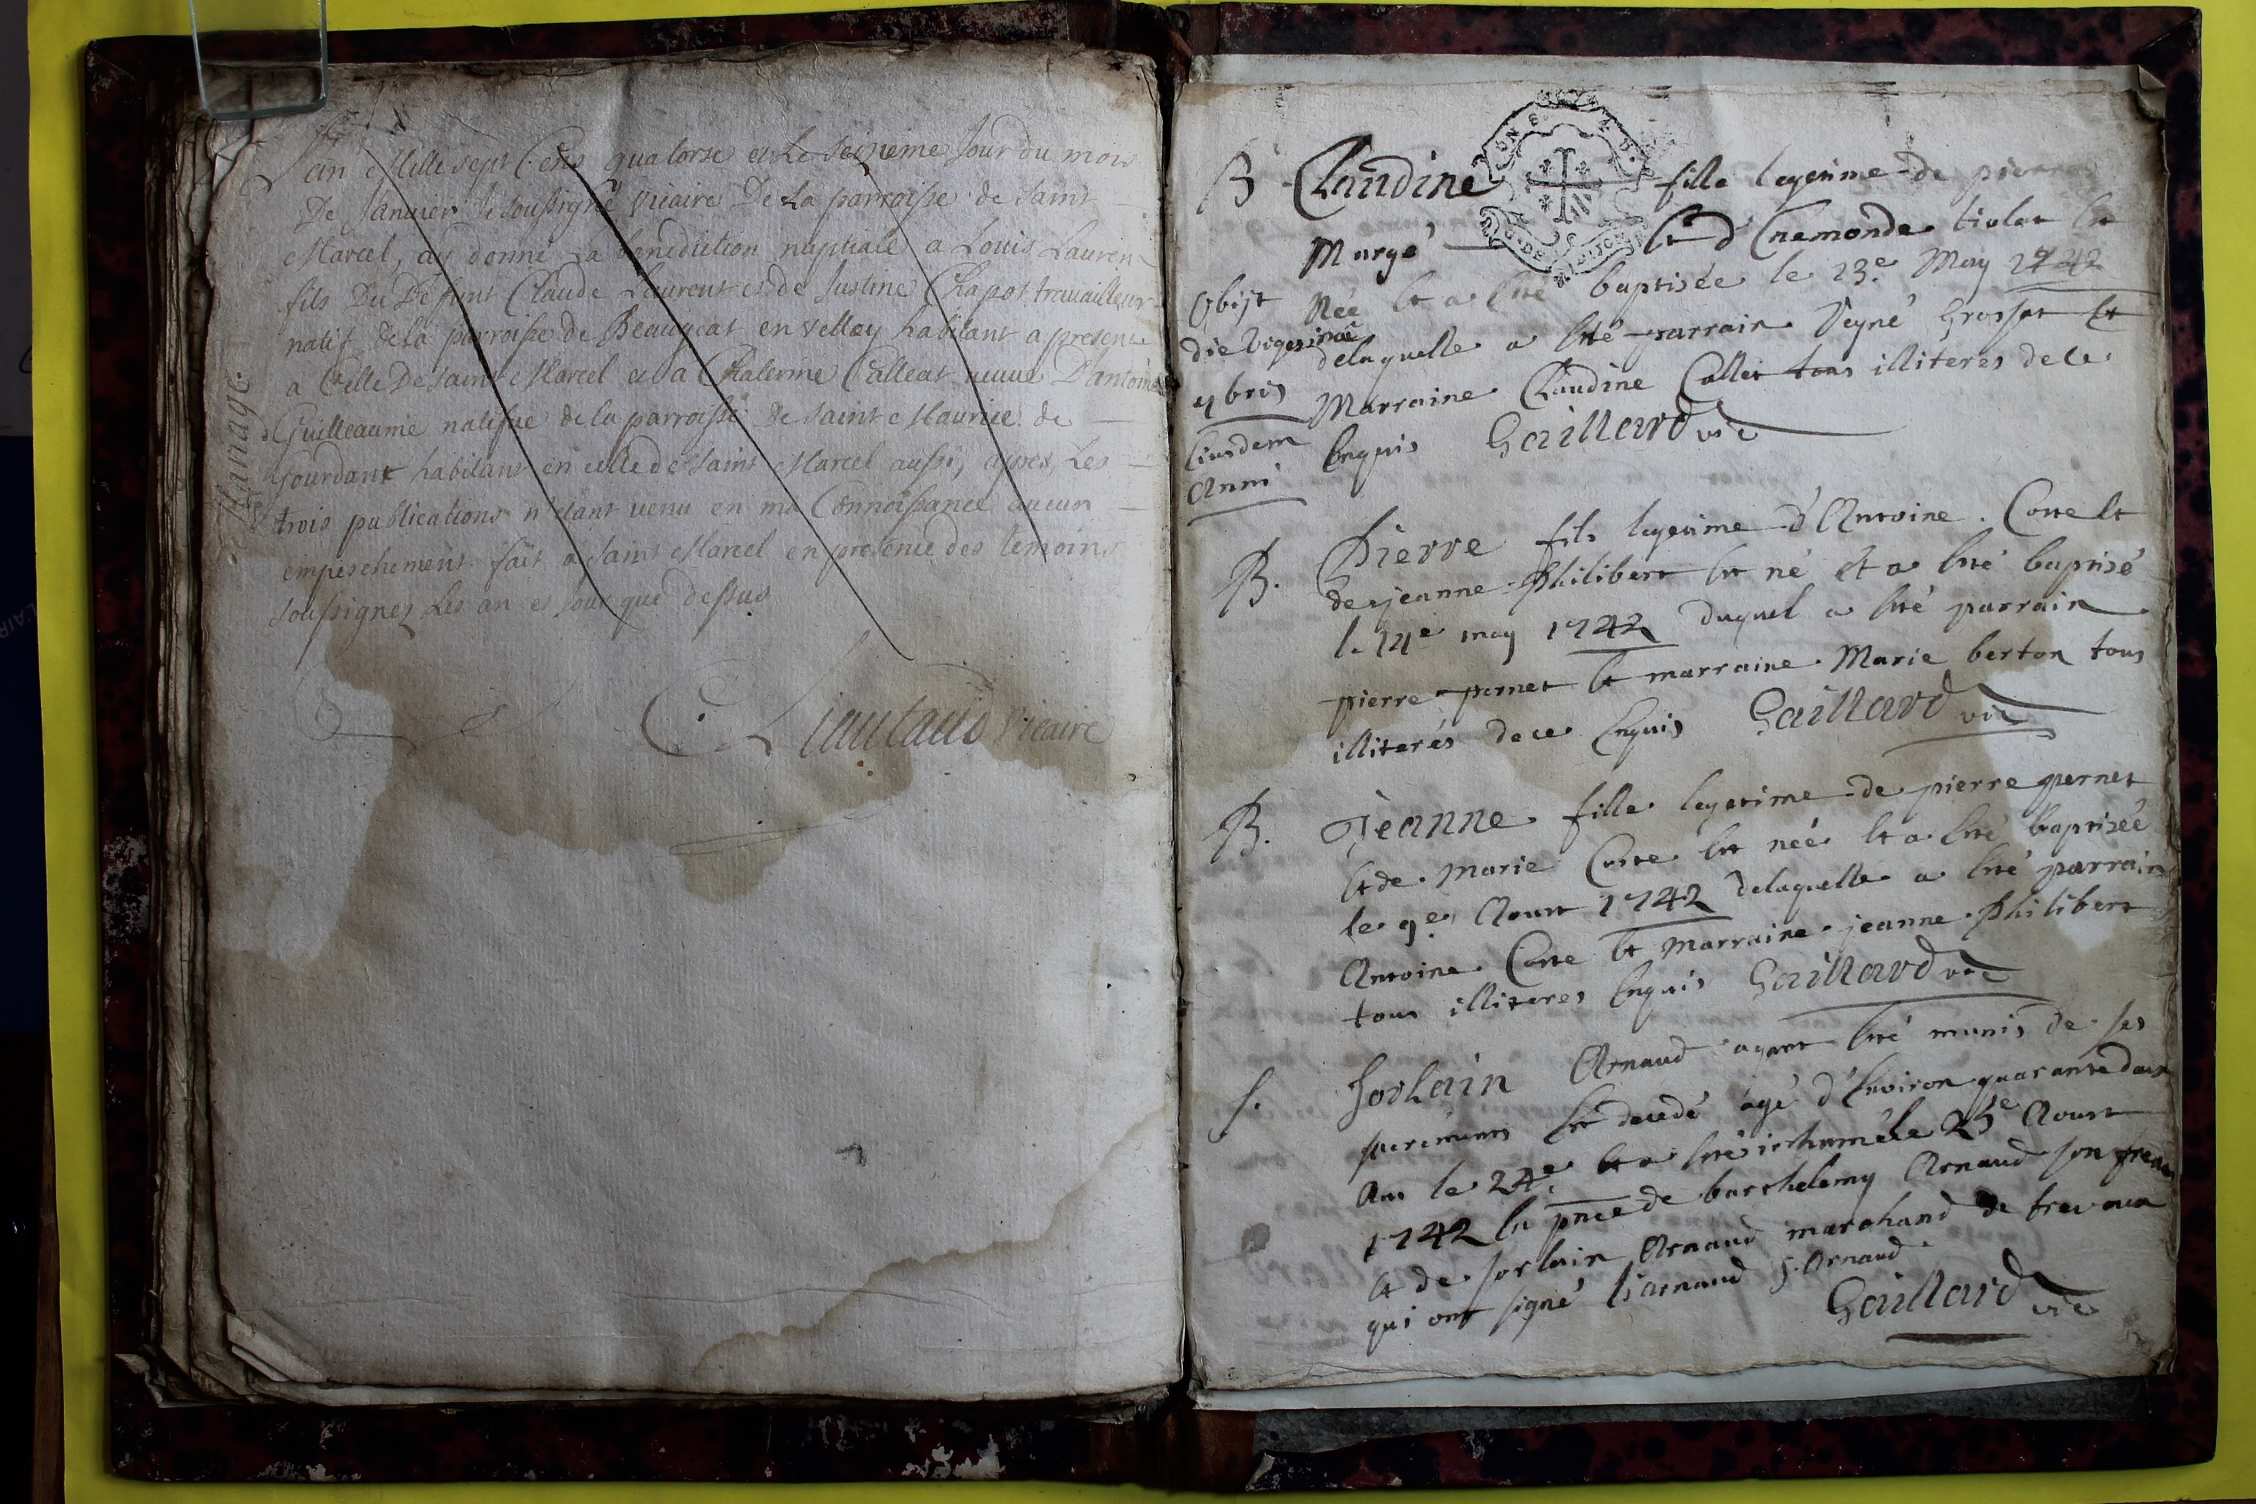 Mariage.
L'an Mille sept Cens quatorse et Le seizieme Jour du mois
De Janvier Je soussigné vicaire De La parroisse de saint
Marcel, ay donné La benediction nuptiale a Louis Laurens
fils Du Defunt Claude Laurent et de Justine Chapot travailleur
natif de la parroise de Beaugeat en vellay habitant a present
a Celle De saint Marcel et a Chaterine Calleat veuve D'antoine
Guilleaume natifue de la parroisse De saint Maurice de
Gourdant habitans en celle de saint Marcel aussi, apres Les
trois publications n'etant venu en ma Connoissance aucun
empeschement fait a saint Marcel en presence des temoins
soussignez Les an et Jour que dessus
Vicaire
B Claudine fille legetime de pierre
Murgé Et d'Enemonde tiolet Et
Née Et a Eté baptisée le 23e May 1742
delaquelle a Eté parrain Grosset Et
Marraine Claudine Collet tous illiteres dece
Enquis Gaillard vic
Obijt
die vigesima
9bris
Eiusdem
Anni
B. Pierre fils legetime d'Antoine Coste Et
de jeanne Philibert Et né Et a Eté baptisé
le 14e may 1742 duquel a Eté parrain
pierre pernet Et marraine Marie berton tous
illiterés dece Enquis Gaillard vic
B. Jeanne fille legetime de pierre pernet
Et de Marie Coste Et née Et a Eté baptizée
le 9e Aoust 1742 delaquelle a Eté parrain
Antoine Coste Et marraine jeanne Philibert
tous illiteres Enquis Gaillard vic
S. Sorlain Arnaud ayant Eté munis de ses
sacremens Est decedé agé d'Environ quarante deux
Ans le 24e Et a Eté inhumé le 25e Aoust
1742 En pnce de barthelemy Arnaud son frere
Et de sorlain Arnaud marchand de trevoux
qui ont signé B. arnaud S. Arnaud.
Gaillard vic